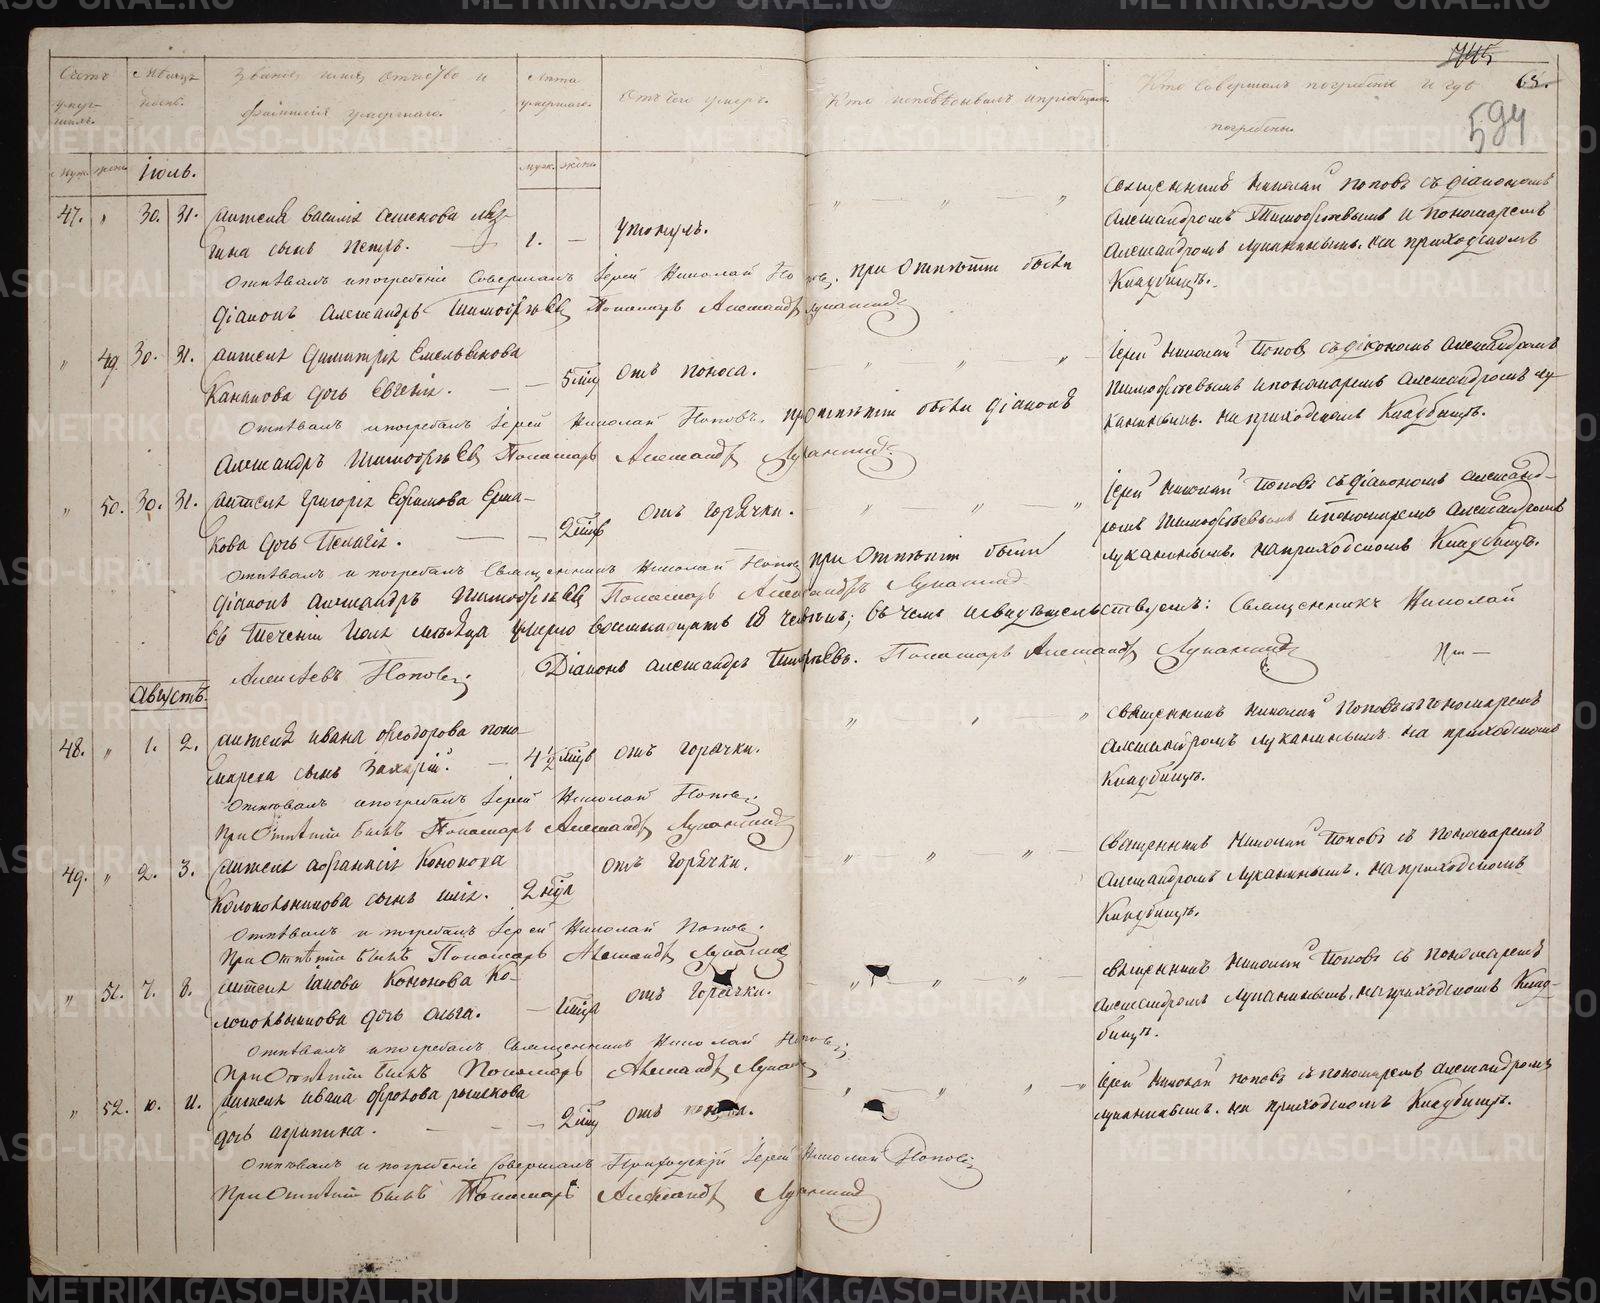 Счетъ умер-шихъ.
Мѣсяцъ и день.
Званіе, имя, отчество и фамилія умершаго.
Лѣта умершаго.
Отъ чего умеръ.
Кто исповѣдывалъ и пріобщалъ.
Кто совершалъ погребеніе и гдѣ погребены.
65.
594
Муж. жен. Іюль. муж. жен.
47. " 30. 31. жителя Василія Семенова
сынъ Петръ. 1. — утонулъ.
Священникъ Николай Поповъ съ діакономъ
Александромъ Тимофѣевымъ и пономаремъ
Александромъ Луканинымъ. на приходскомъ
Кладбищѣ.
Отпѣвалъ и погребеніе Совершалъ Іерей Николай Поповъ. при Отпѣтіи были
Діаконъ Александръ Тимофѣевъ Пономарь Александръ Луканинъ
" 49. 30. 31. жителя Димитрія Емельянова
Канакова дочь Евгенія. — — 5 мѣц отъ поноса.
Іерей Николай Поповъ съ діакономъ Александромъ
Тимофѣевымъ и пономаремъ Александромъ Лу-
канинымъ. на приходскомъ Кладбищѣ.
Отпѣвалъ и погребалъ Іерей Николай Поповъ. при отпѣтіи были Діаконъ
Александръ Тимофѣевъ Пономарь Александръ Луканинъ
" 50. 30. 31. жителя Григорія Ефимова Ерма-
кова дочь Пелагія. — — 2 мѣцъ отъ горячки.
Іерей Николай Поповъ съ діакономъ Александ-
ромъ Тимофѣевымъ и пономаремъ Александромъ
Луканинымъ. на приходскомъ Кладбищѣ.
Отпѣвалъ и погребалъ Священникъ Николай Поповъ при Отпѣтіи были
Діаконъ Александръ Тимофѣевъ Пономарь Александръ Луканинъ
Въ теченіи Іюля мѣсяца умерло восемнадцать 18 человѣкъ; въ чемъ и свидѣтельствуемъ: Священникъ Николай
Алексѣевъ Поповъ Діаконъ Александръ Тимофѣевъ. Пономарь Александръ Луканинъ
Августъ.
48. " 1. 2. жителя Ивана Феодорова Поно-
марева сынъ Захарій. — 4½ мѣцъ отъ горячки.
Священникъ Николай Поповъ съ пономаремъ
Александромъ Луканинымъ на приходскомъ
Кладбищѣ.
Отпѣвалъ и погребалъ Іерей Николай Поповъ
При Отпѣтіи былъ Пономарь Александръ Луканинъ
49. " 2. 3. жителя Афанасія Кононова
Колокольникова сынъ Илія. 2 отъ горячки.
Священникъ Николай Поповъ съ пономаремъ
Александромъ Луканинымъ. на приходскомъ
Кладбищѣ.
Отпѣвалъ и погребалъ Іерей Николай Поповъ
При Отпѣтіи былъ Пономарь Александръ Луканинъ
" 51. 7. 8. жителя Іакова Кононова Ко-
локольникова дочь Ольга. — отъ горячки.
Священникъ Николай Поповъ съ пономаремъ
Александромъ Луканинымъ. на приходскомъ Клад-
бищѣ.
Отпѣвалъ и погребалъ Священникъ Николай Поповъ
При Отпѣтіи былъ Пономарь Александръ Луканинъ
" 52. 10. 11. жителя Ивана Фролова Рыжкова
дочь Агрипина. — — — 2 мѣц отъ поноса.
Іерей Николай Поповъ съ пономаремъ Александромъ
Луканинымъ. на приходскомъ Кладбищѣ.
Отпѣвалъ и погребеніе Совершалъ Приходскій Іерей Николай Поповъ
При Отпѣтіи былъ Пономарь Александръ Луканинъ
METRIKI.GASO-URAL.RU